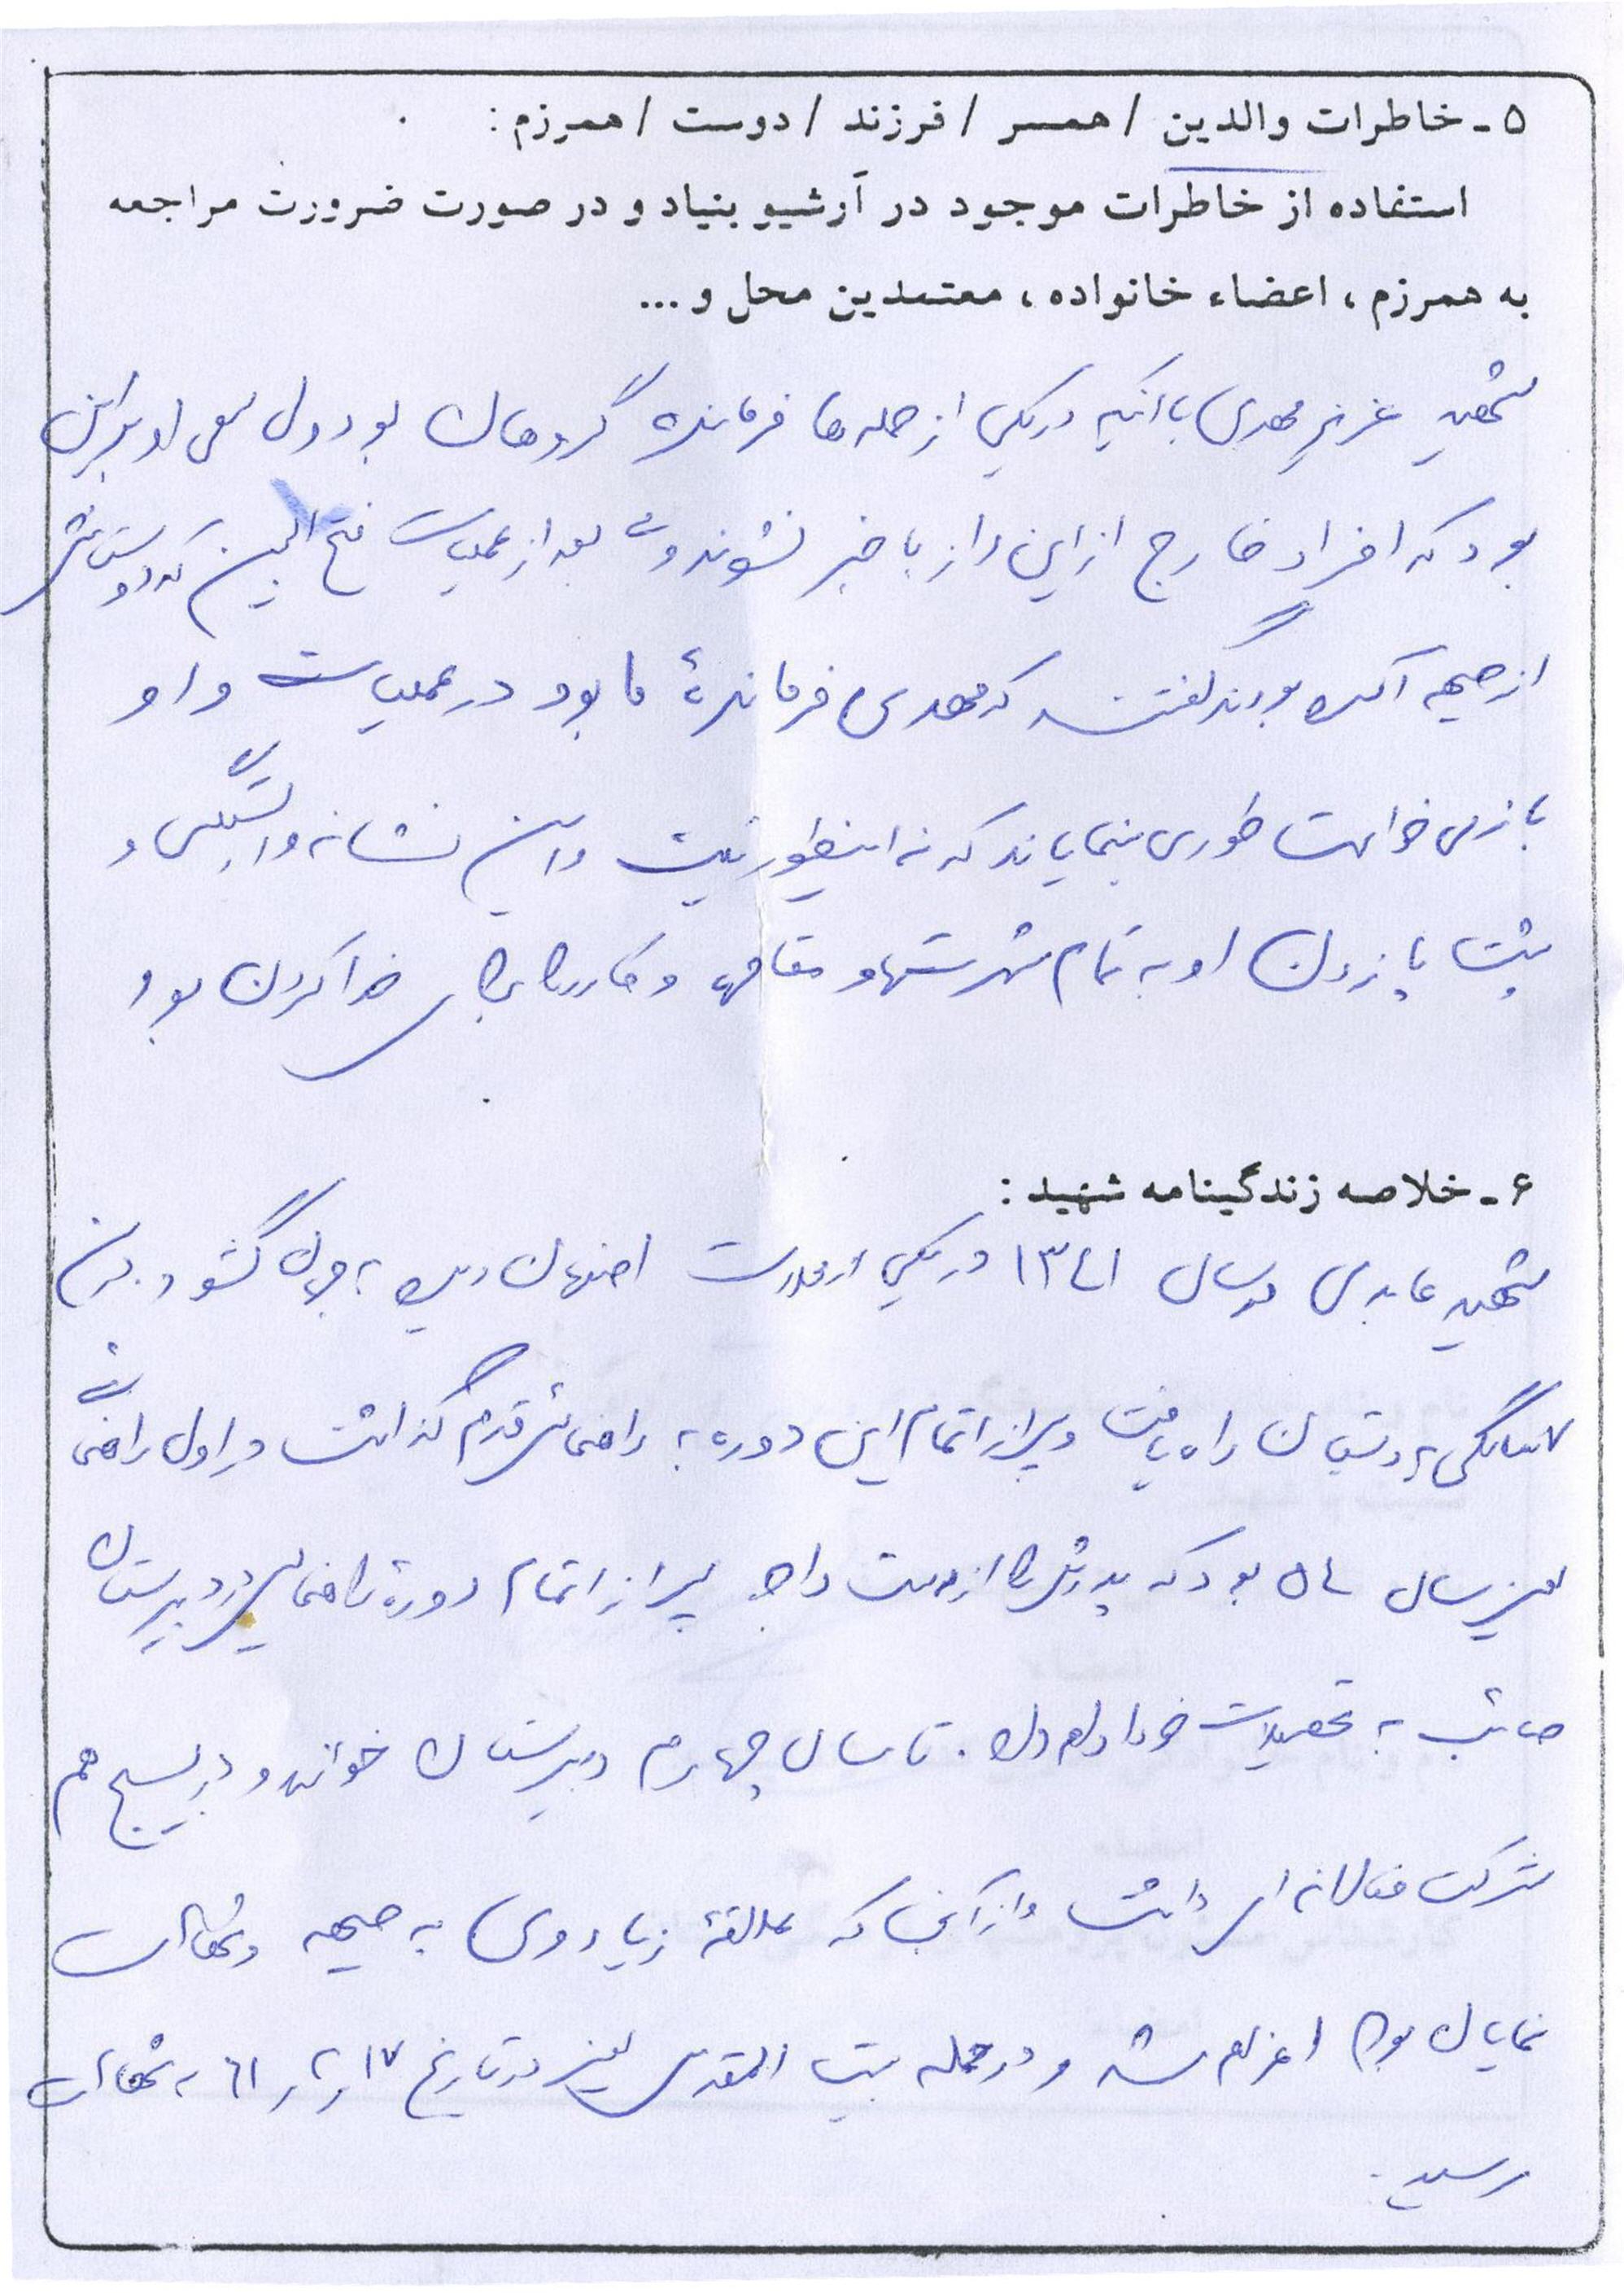 ۵ - خاطرات والدین / همسر / فرزند / دوست / همرزم :
استفاده از خاطرات موجود در آرشیو بنیاد و در صورت ضرورت مراجعه
به همرزم ، اعضاء خانواده ، معتمدین محل و ...
شهید عزیز مهدی با آنکه در یکی از حمله ها فرمانده گروهان بود ولی سعی او بر این
بود که افراد خارج از این راز با خبر نشوند و بعد از عملیات فتح المبین که دوستانش
از جبهه آمده بودند گفتند که مهدی فرماندهٔ ما بود در عملیات و او
باز می خواست طوری بنمایاند که نه اینطور نیست و این نشانه وارستگی و
پشت پا زدن او به تمام شهرتها و مقامها و کار را برای خدا کردن بود
۶ - خلاصه زندگینامه شهید :
شهید عابدی در سال ۱۳٤۱ در یکی از محلات اصفهان دیده به جهان گشود در سن
۷ سالگی به دبستان راه یافت و پس از اتمام این دوره به راهنمائی قدم گذاشت در اول راهنمائی
یعنی سال ٥٤ بود که پدرش را از دست داد پس از اتمام دورهٔ راهنمائی در دبیرستان
صائب به تحصیلات خود ادامه داد . تا سال چهارم دبیرستان خواند و در بسیج هم
شرکت فعالانه ای داشت و از آنجا که علاقهٔ زیاد وی به جبهه و شهادت
نمایان بود اعزام شد و در حمله بیت المقدس یعنی در تاریخ ۱۷ ر ۲ ر ٦۱ به شهادت
رسید .